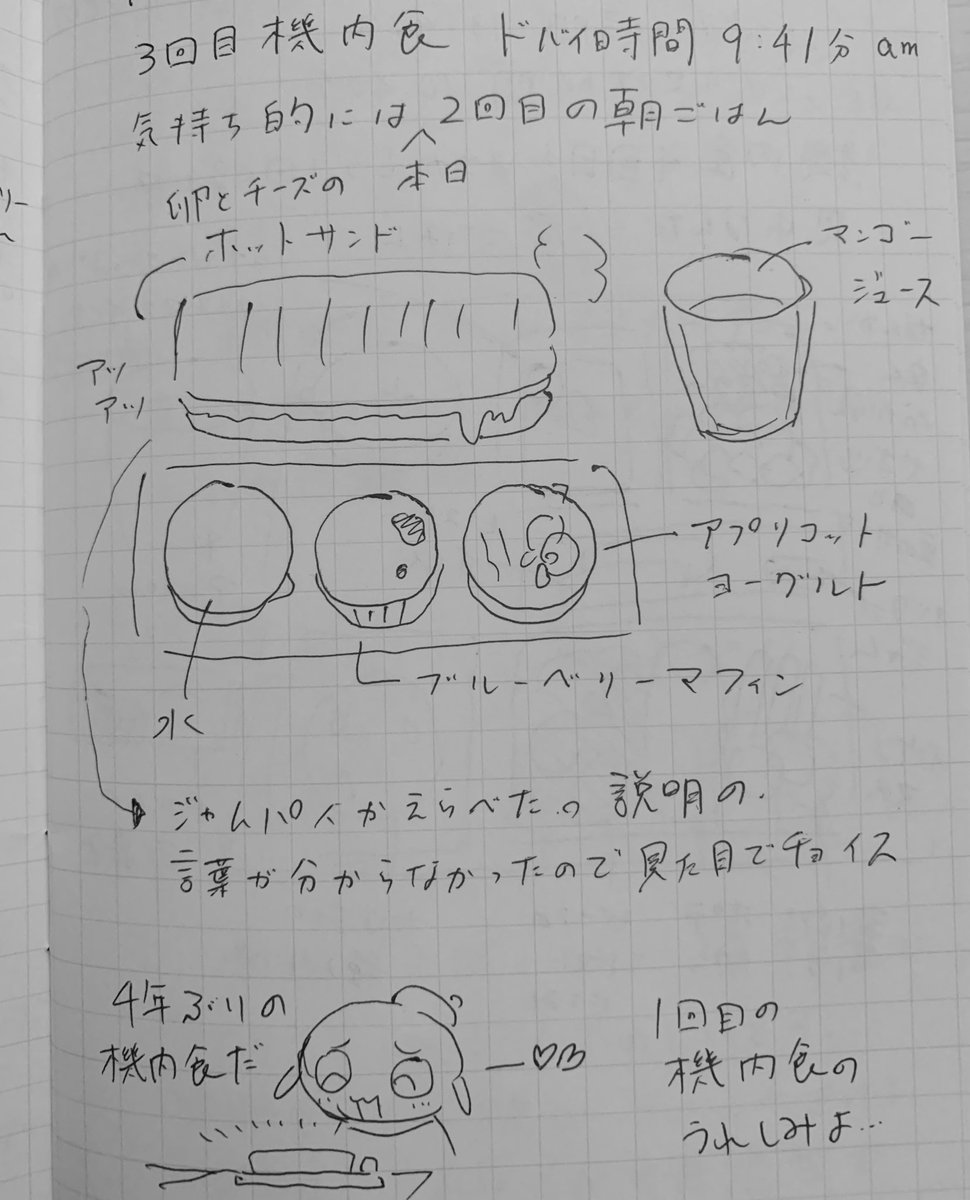 3回目 機内食 ドバイ時間 9:41分 am
気持ち的には 2回目の朝ごはん
本日
卵とチーズの
ホットサンド
マンゴー
ジュース
アツ
アツ
アプリコット
ヨーグルト
ブルーベリーマフィン
水
ジャムパイかえらべた。説明の
言葉が分からなかったので見た目でチョイス
4年ぶりの
機内食だ
1回目の
機内食の
うれしみよ…